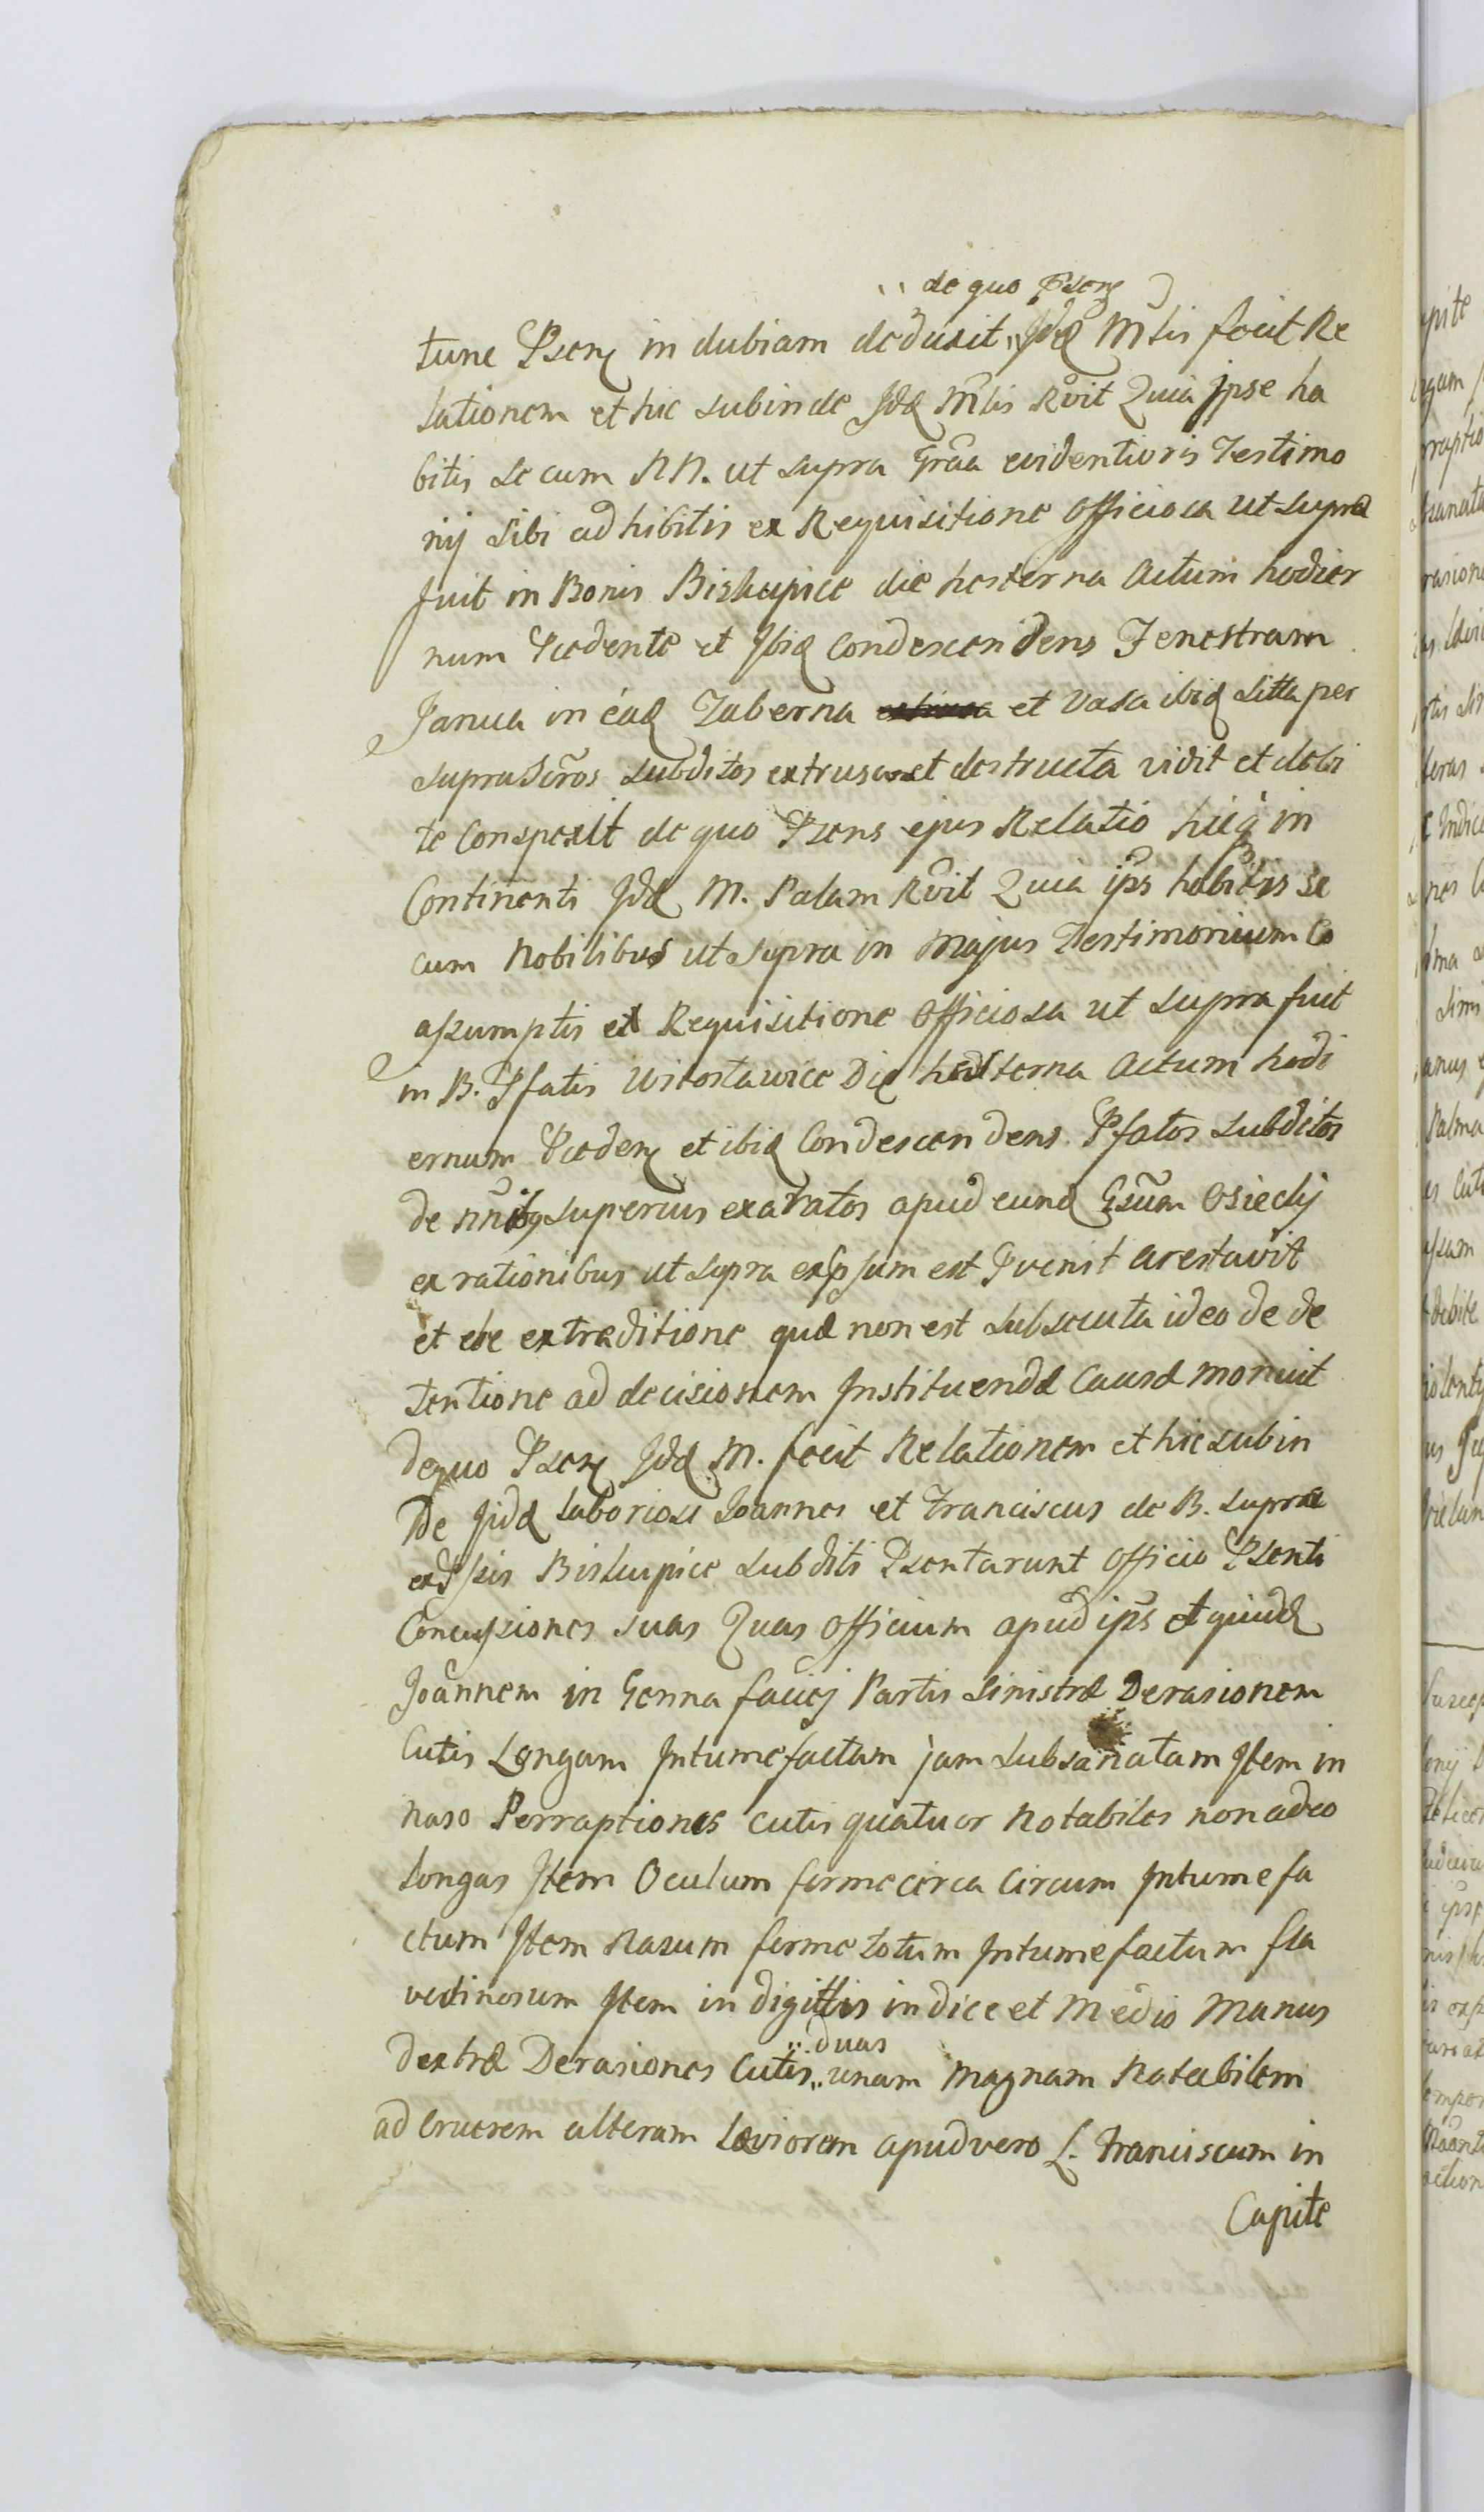 de quo Psens
tunc Psens in dubiam deduxit Idq Mlis fecit Re
lationem et hic subinde Idq Mlis Rvit Quia ipse ha
bitis secum NN. ut supra Graa evidentioris Testimo
nij sibi adhibitis ex Requisitione officiosa ut supra
fuit in Bonis Biskupice die hesterna Actum hodier
num Pcedente et Ibiq Condescendens Fenestram
Janua in eaq Taberna et vasa ibiq sitta per
supraScros subditos extrusa et destructa vidit et debi
te Conspexit de quo Psens ejus Relatio hicq in
Continenti Idq M. Palam Rvit Quia ips habitis se
cum Nobilibus ut supra in Majus Testimonium Co
assumptis ex Requisitione Officiosa ut supra fuit
in B. Pfatis Witostawice Die hesterna Actum hodi
ernum Pceden et ibiq Condescendens Pfatos subditos
de nnibq superius exaratos apud eund Gsum Osiecki
ex rationibus ut supra expssum est Pvenit arestavit
et ebe extraditione quæ non est subsecuta ideo de de
tentione ad decisionem Instituendæ Causæ monuit
dequo Psens Idq M. fecit Relationem et hic subin
De Iidq Laboriosi Joannes et Franciscus de B. supra
expssis Biskupice subditi Psentarunt Officio Psenti
Concussiones suas Quas Officium apud ips et quidq
Joannem in Genna faciej Partis sinistræ Derasionem
Cutis Longam Intumefactam jam subsanatam Item in
naso Perraptiones cutis quatuor notabiles non adeo
longas Item Oculum ferme circa Circum Intumefa
ctum Item Nasum ferme totum Intumefactum fla
vedinosum Item in digittis indice et Medio Manus
duas
dextræ Derasiones Cutis unam magnam Notabilem
ad Cruorem alteram Leviorem apud vero L. Franciscum in
Capite